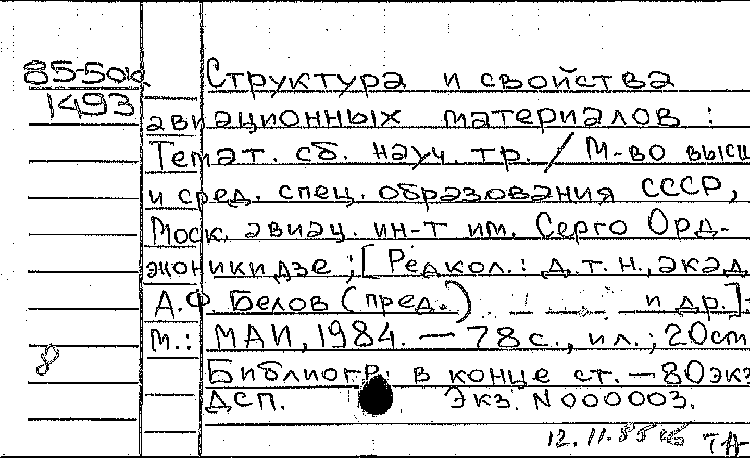 85-50
1493
Структура и свойства
авиационных материалов :
Темат. сб. науч. тр. / М-во высш
и сред. спец. образования СССР,
Моск. авиац. ин-т им. Серго Орд-
жоникидзе ; [Редкол.: д.т.н., акад
А.Ф. Белов (пред.) и др.].
М.: МАИ, 1984. — 78 с., ил.; 20 см
Библиогр. в конце ст. — 80 экз
ДСП. Экз. N 000003.
8
12.11.85